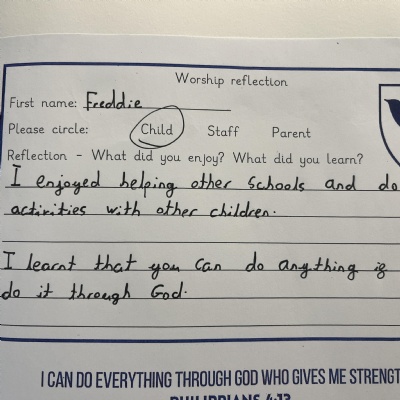 Worship reflection
First name: Freddie
Please circle: Child Staff Parent
Reflection - What did you enjoy? What did you learn?
I enjoyed helping other schools and do
activities with other children.
I learnt that you can do anything if
do it through God.
I CAN DO EVERYTHING THROUGH GOD WHO GIVES ME STRENGT
PHILIPPIANS 4:13